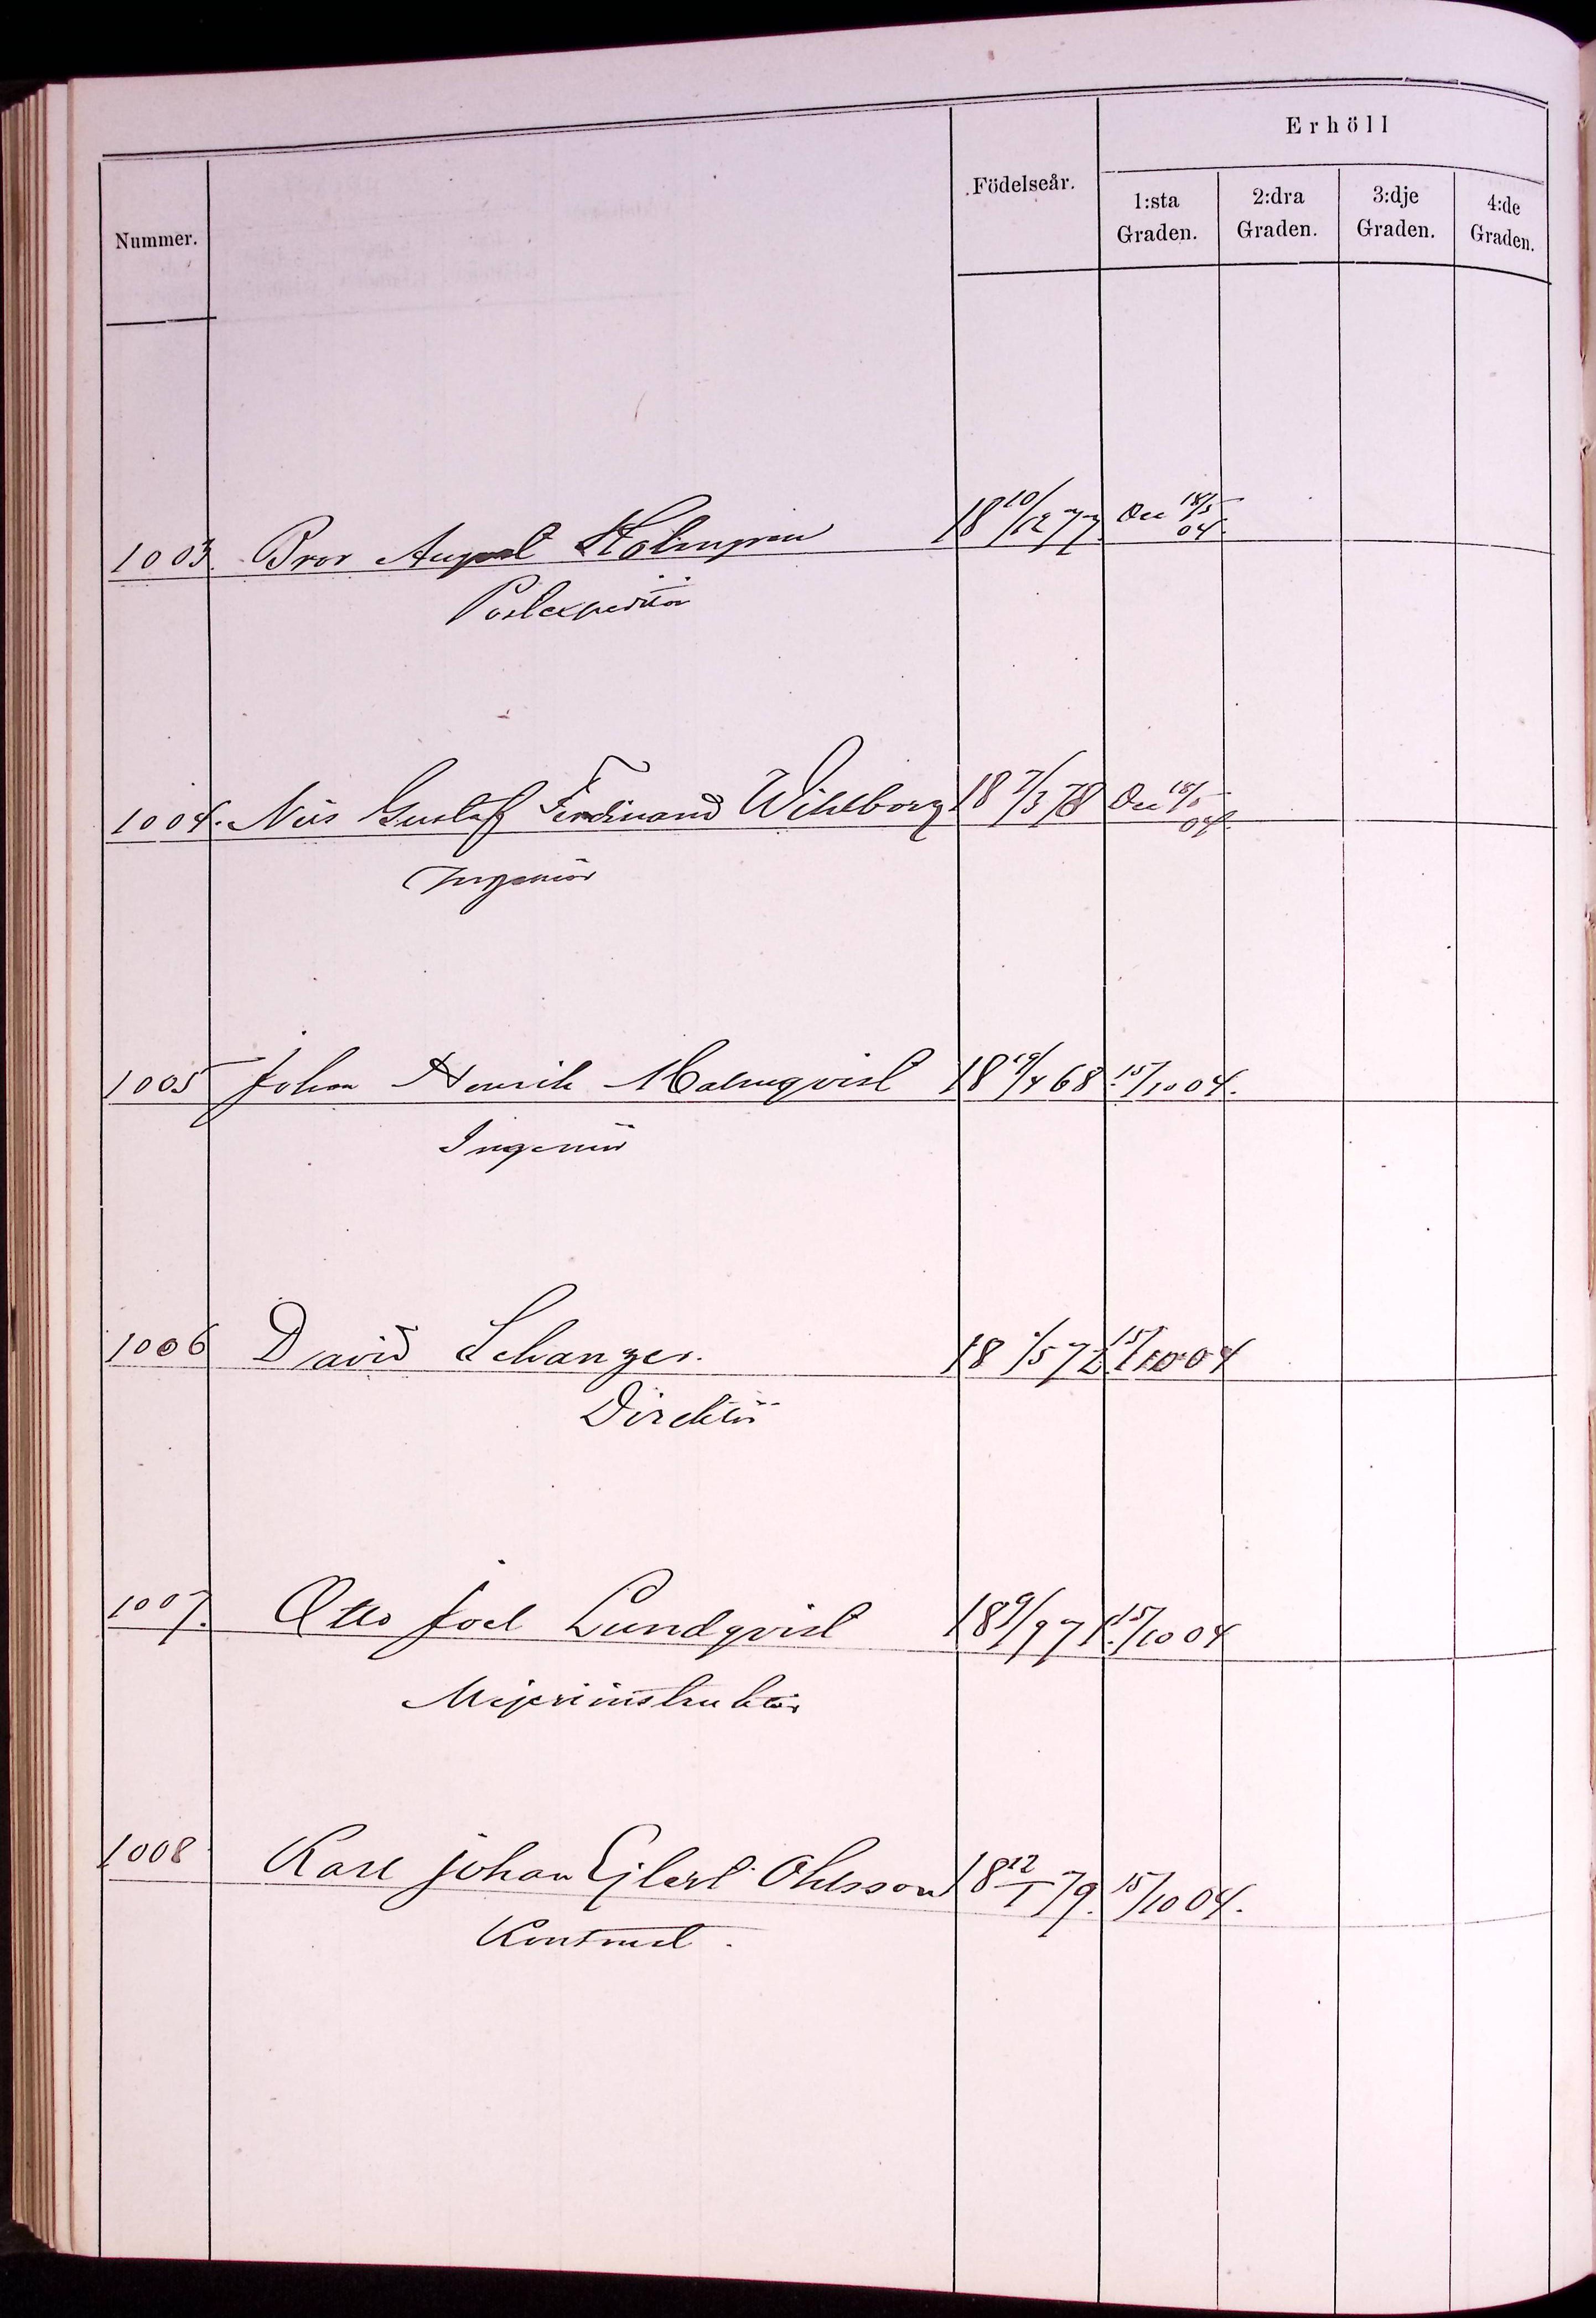 Erhöll
Nummer. Födelseår. 1:sta Graden. 2:dra Graden. 3:dje Graden. 4:de Graden.
1003. Bror August Holmgren 18 10/12 77. Den 18/5 04.
Postexpeditör
1004. Nils Gustaf Ferdinand Wihlborg 18 7/3 78 Den 18/5 04.
Ingeniör
1005 Johan Henrik Malmqvist 18 19/4 68 15/10 04.
Ingeniör
1006 David Schanzer. 18 1/5 72 15/10 04
Direktör
1007. Otto Joel Lundqvist 18 9/9 71. 15/10 04
Mejeriinstruktör
1008 Karl Johan Ejlert Ohlsson 18 12/1 79. 15/10 04.
Kontorist.